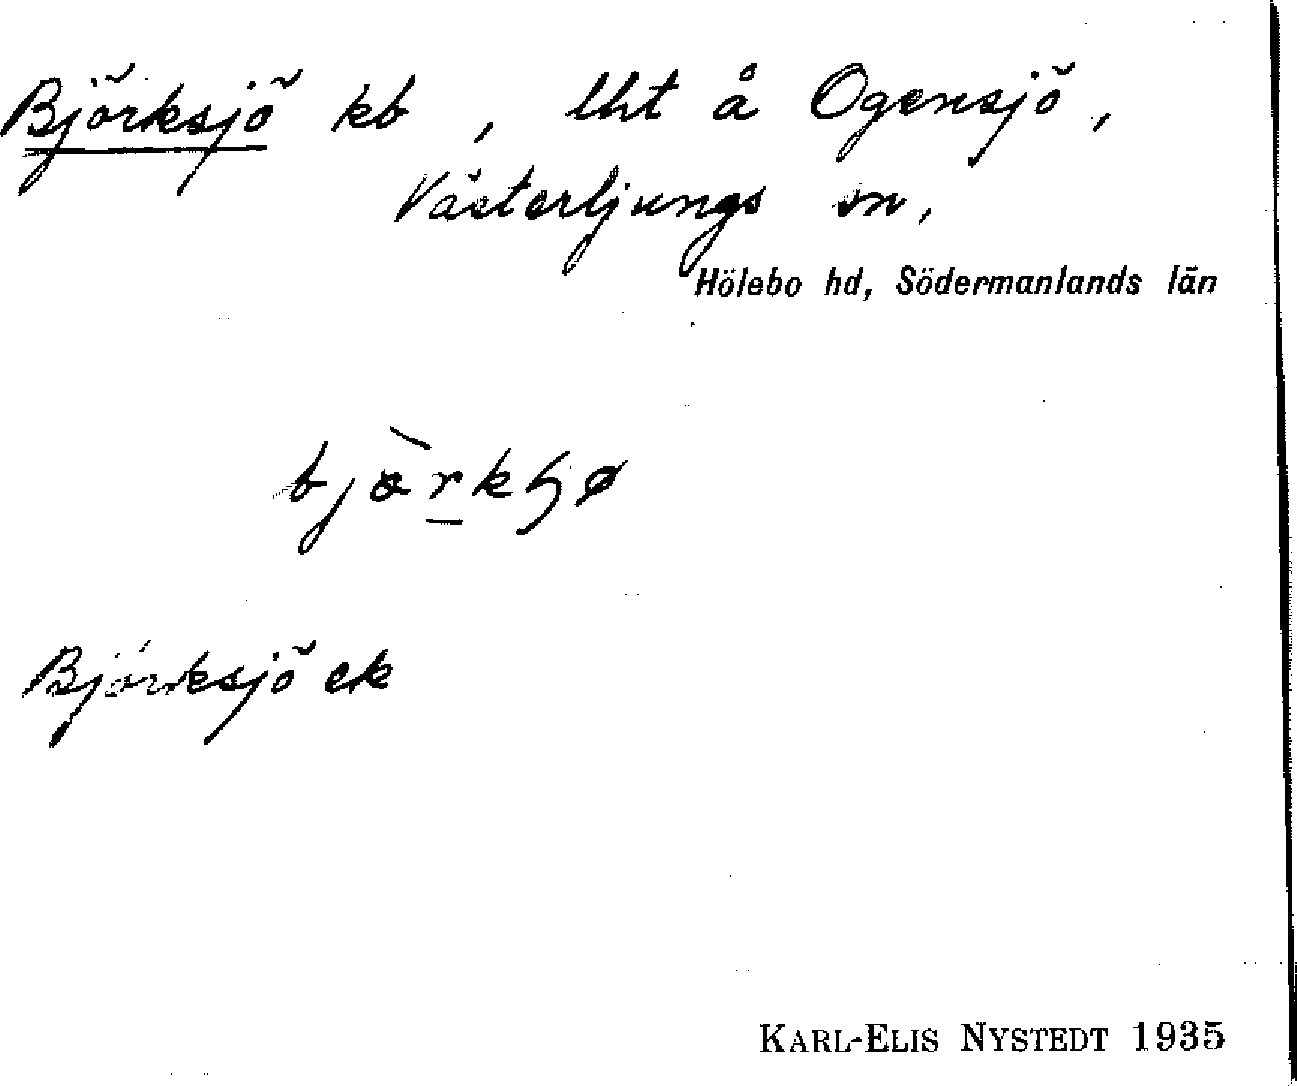 Björksjö kb, lht å Ogensjö,
Västerljungs sn,
Hölebo hd, Södermanlands län
bjò̱rkʃø
Björksjö ek
KARL-ELIS NYSTEDT 1935